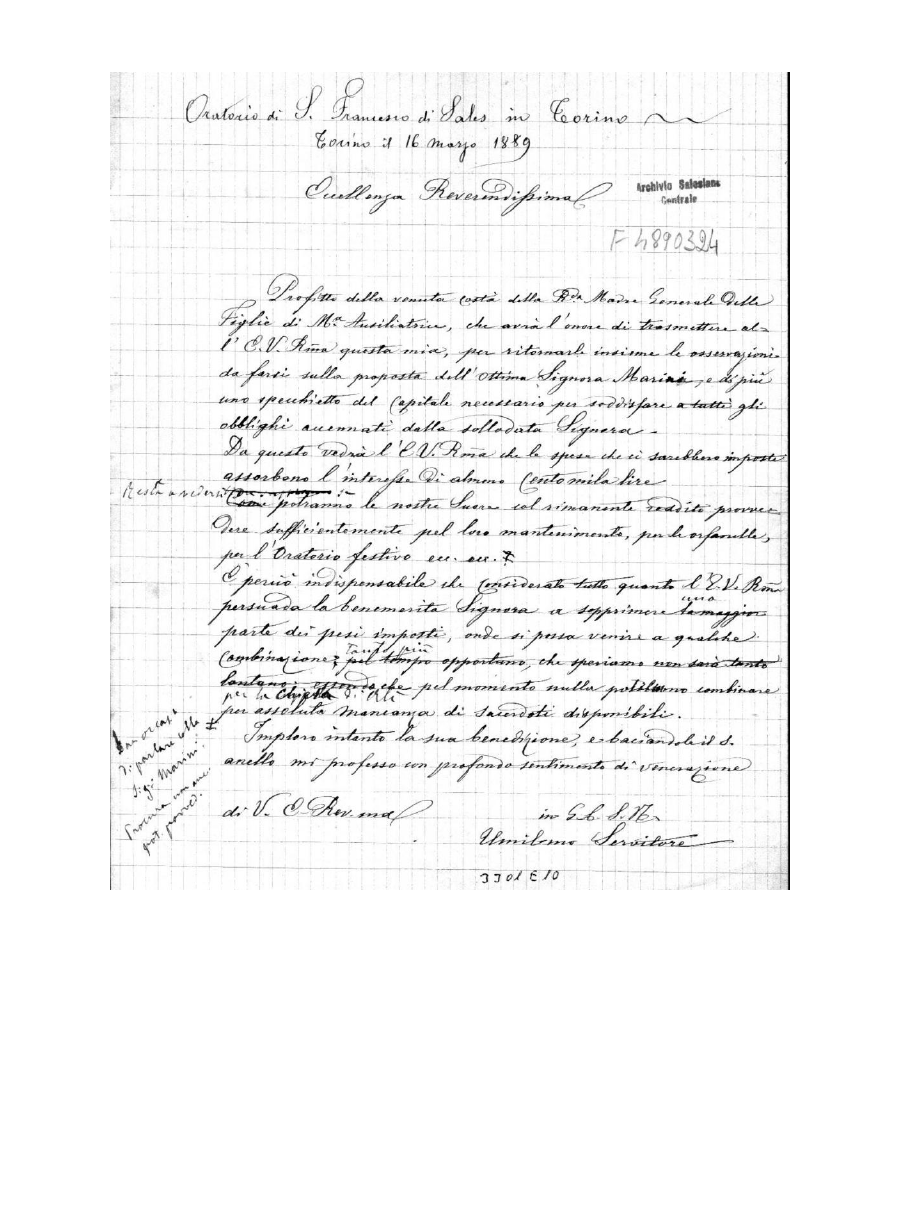 Oratorio di S. Francesco di Sales in Torino
Torino il 16 marzo 1889
Eccellenza Reverendissima
Archivio Salesiano
Centrale
F 4890324
Profitto della venuta costà della Rda Madre Generale delle
Figlie di Ma Ausiliatrice, che avrà l'onore di trasmettere al-
l' E.V. Rma questa mia, per ritornarle insieme le osservazioni
da farsi sulla proposta dell'ottima Signora Marini, e di più
uno specchietto del capitale necessario per soddisfare a tutti gli
obblighi accennati dalla sollodata Signora.
Da questo vedrà l'E.V. Rma che le spese che ci sarebbero imposte
assorbono l'interesse di almeno centomila lire
Resta a vedersi
Come potranno le nostre Suore col rimanente reddito provve-
dere sufficientemente pel loro mantenimento, per le orfanelle,
per l'Oratorio festivo ecc. ecc.
È perciò indispensabile che considerato tutto quanto l'E.V. Rma
persuada la benemerita Signora a sopprimere la maggior
una
parte dei pesi imposti, onde si possa venire a qualche
combinazione; pel tempo opportuno, che speriamo non sarà tanto
Tanto più
lontano; essendo che pel momento nulla possiamo combinare
per la Chiesa di
per assoluta mancanza di sacerdoti disponibili.
Imploro intanto la sua benedizione, e baciandole il S.
anello mi professo con profondo sentimento di venerazione
di V. E. Rev.ma
in G.C. S.N.
Umilissmo Servitore
di parlare colla
Sig. Marini.
3301 E 10